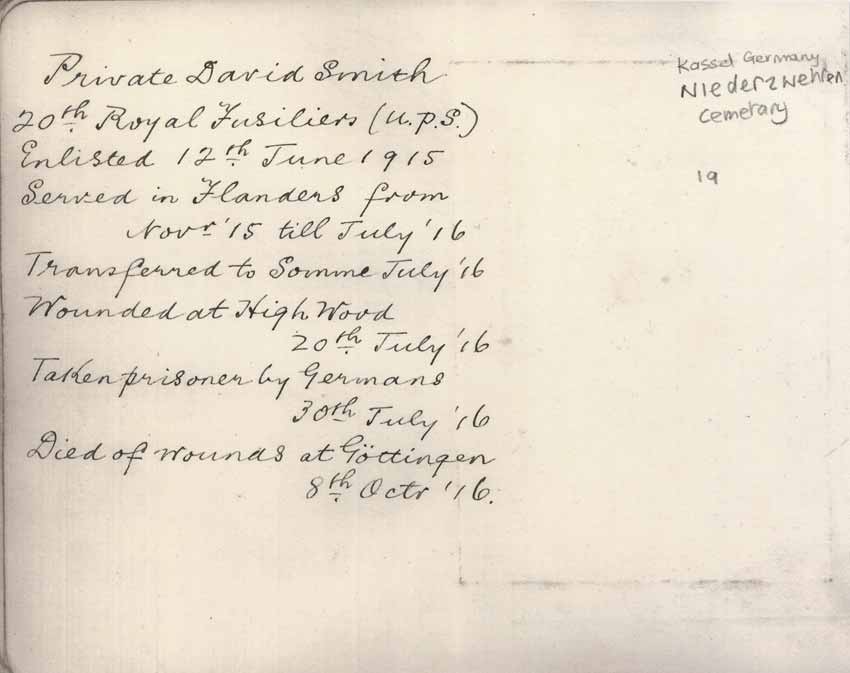 Private David Smith
20th Royal Fusiliers (U.P.S.)
Enlisted 12th June 1915
Served in Flanders from
Novr '15 till July '16
Transferred to Somme July '16
Wounded at High Wood
20th July '16
Taken prisoner by Germans
30th July '16
Died of wounds at Göttingen
8th Octr '16.
Kassel Germany
Niederzwehren
Cemetary
19